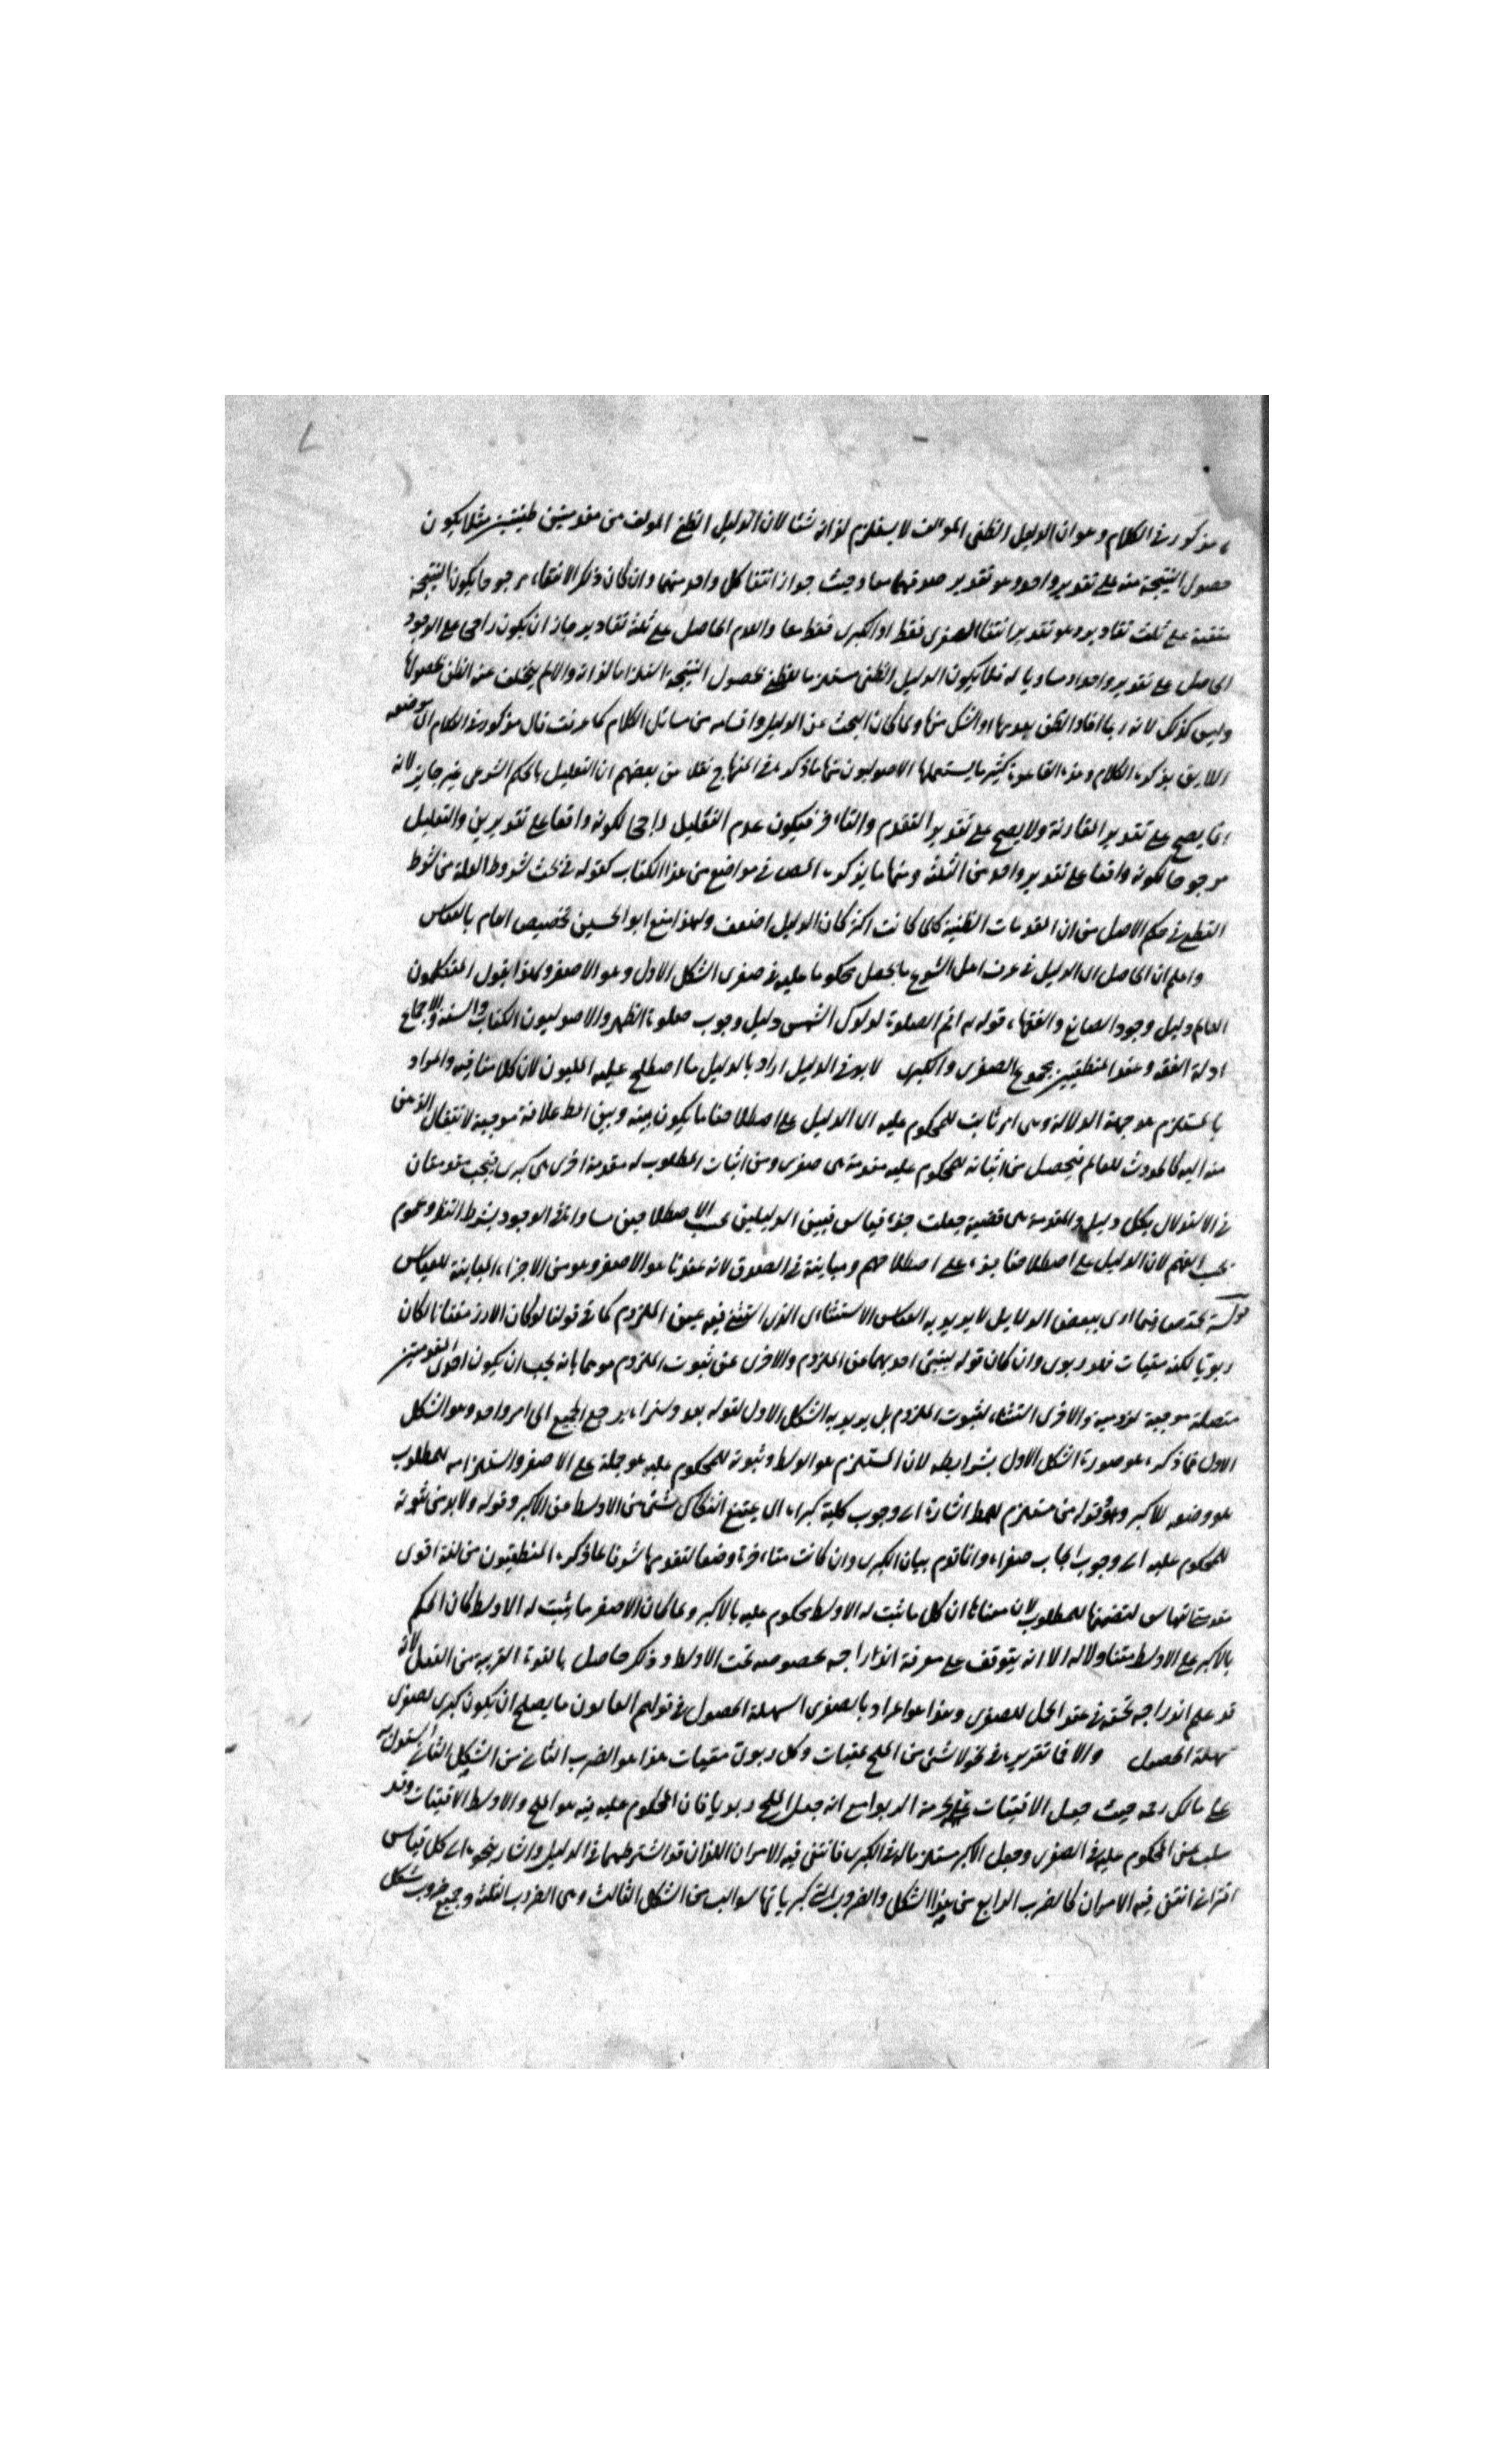 مذكور في الكلام وهو ان الدليل الظني المؤلف لا يستلزم لذاته شيئا لان الدليل الظني المؤلف من مقدمتين ظنيتين مثلا يكون
حصول النتيجة منه على تقدير واحد وهو تقدير صدقهما معا وحيث جواز انتفا كل واحد منهما وان كان ذلك الانتفاء مرجوحا يكون النتيجة
منتفية على ثلث تقادير وهو تقدير انتفا الصغرى فقط او الكبرى فقط معا والعدم الحاصل على ثلثة تقادير جاز ان يكون راجحا على الوجود
الحاصل على تقدير واحد او مساويا له فلا يكون الدليل الظني مستلزما للظن بحصول النتيجة استلزاما لذاته والا لم يتخلف عنه الظن بحصولها
وليس كذلك لانه ربما افاد الظن بعدمها او الشك منها ولما كان البحث عن الدليل واقسامه من مسائل الكلام كما عرفت قال مذكور في الكلام اي موضعه
اللايق بذكره الكلام وهذه القاعدة كثير ما يستعملها الاصوليون منها ما ذكره في المنهاج نقلا عن بعضهم ان التعليل بالحكم الشرعي غير جايز لانه
انما يصح على تقدير المقارنة ولا يصح على تقدير التقدم والتاخر فيكون عدم التعليل راجحا لكونه واقعا على تقديرين والتعليل
مرجوحا لكونه واقعا على تقدير واحد من الثلثة ومنها ما يذكره المص في مواضع من هذا الكتاب كقوله في بحث شروط العلة من شرط
القطع في حكم الاصل من ان المقدمات الظنية كلما كانت اكثر كان الدليل اضعف ولهذا منع ابو الحسين تخصيص العام بالقياس
واعلم ان الحاصل ان الدليل في عرف اهل الشرع ما يجعل محكوما عليه في صغرى الشكل الاول وهو الاصغر ولهذا يقول المتكلمون
العالم دليل وجود الصانع والفقهاء قوله تع اقم الصلوة لدلوك الشمس دليل وجوب صلوة الظهر والاصوليون الكتاب والسنة والاجماع
ادلة الفقه وعند المنطقيين مجموع الصغرى والكبرى لا بد في الدليل اراد بالدليل ما اصطلح عليه المليون لان كلامنا فيه والمراد
بالمستلزم هو جهة الدلالة وهي امر ثابت للمحكوم عليه اي الدليل على اصطلاحنا ما يكون بينه وبين المط علاقة موجبة لانتقال الذهن
منه اليه كالحدوث للعالم فيحصل من اثباته للمحكوم عليه مقدمة هي صغرى ومن اثبات المطلوب له مقدمة اخرى هي كبرى فيجب مقدمتان
في الاستدلال بكل دليل والمقدمة هي قضية جعلت جزء قياس فبين الدليلين بحسب الاصطلاحين مساواة في الوجود بشرط النظر وعموم
بحسب الفهم لان الدليل على اصطلاحنا جزء على اصطلاحهم ومباينة في الصدق لانه عندنا هو الاصغر وهو من الاجزاء المباينة للقياس
قوله مختصما فيما ادى ببعض الدلايل لا يريد به القياس الاستثنائي الذي استثني فيه عين الملزوم كما في قولنا لو كان الارز مقتاتا لكان
ربويا لكنه مقتات فهو ربوي وان كان قوله ينبئ احديهما عن الملزوم والاخرى عن ثبوت الملزوم موهما بانه يجب ان يكون احدى المقدمتين
متصلة موجبة لزومية والاخرى استثناء لثبوت الملزوم بل يريد به الشكل الاول لقوله بعد ولنراه يرجع الجميع الى امر واحد وهو الشكل
الاول فما ذكره هو صورة الشكل الاول بشرايطه لان المستلزم هو الوسط وثبوته للمحكوم عليه هو حمله على الاصغر واستلزامه للمطلوب
هو وضعه للاكبر وهو قوله من مستلزم للمط اشارة الى وجوب كلية كبراه اي يمتنع انفكاك شئ من الاوسط عن الاكبر وقوله ولا بد من ثبوته
للمحكوم عليه الى وجوب ايجاب صغراه وانما قدم بيان الكبرى وان كانت متاخرة وضعا لتقدمها شرفا على ما ذكره المنطقيون من انه اقوى
مقدمتا القياس لتضمنها للمطلوب لان معناها ان كل ما ثبت له الاوسط محكوم عليه بالاكبر ولما كان الاصغر ما يثبت له الاوسط كان الحكم
بالاكبر على الاوسط متناولا له الا انه يتوقف على معرفة اندراجه بخصوصه تحت الاوسط وذلك حاصل بالقوة القريبة من الفعل لانه
قد علم اندراجه تحته في عقد الحمل للصغرى وهذا هو المراد بالصغرى السهلة الحصول في قولهم القانون ما يصلح ان يكون كبرى لصغرى
سهلة الحصول والا فما تقريره في نحو لا شئ من الملح بمقتات وكل ربوي مقتات هذا هو الضرب الثاني من الشكل الثاني استدل به
على مالك رحمه حيث جعل الاقتيات علة حرمة الربوا مع انه جعل الملح ربويا فان المحكوم عليه فيه هو الملح والاوسط الاقتيات وقد
سلب عن المحكوم عليه في الصغرى وجعل الاكبر مستلزما له في الكبرى فانتفى فيه الامران اللذان قد اشترطهما في الدليل واشار بنحوه الى كل قياس
اقتراني انتفى فيه الامران كالضرب الرابع من هذا الشكل والضروب التي كبرياتها سوالب من الشكل الثالث وهي الضروب الثلثة وجميع ضروب شكل